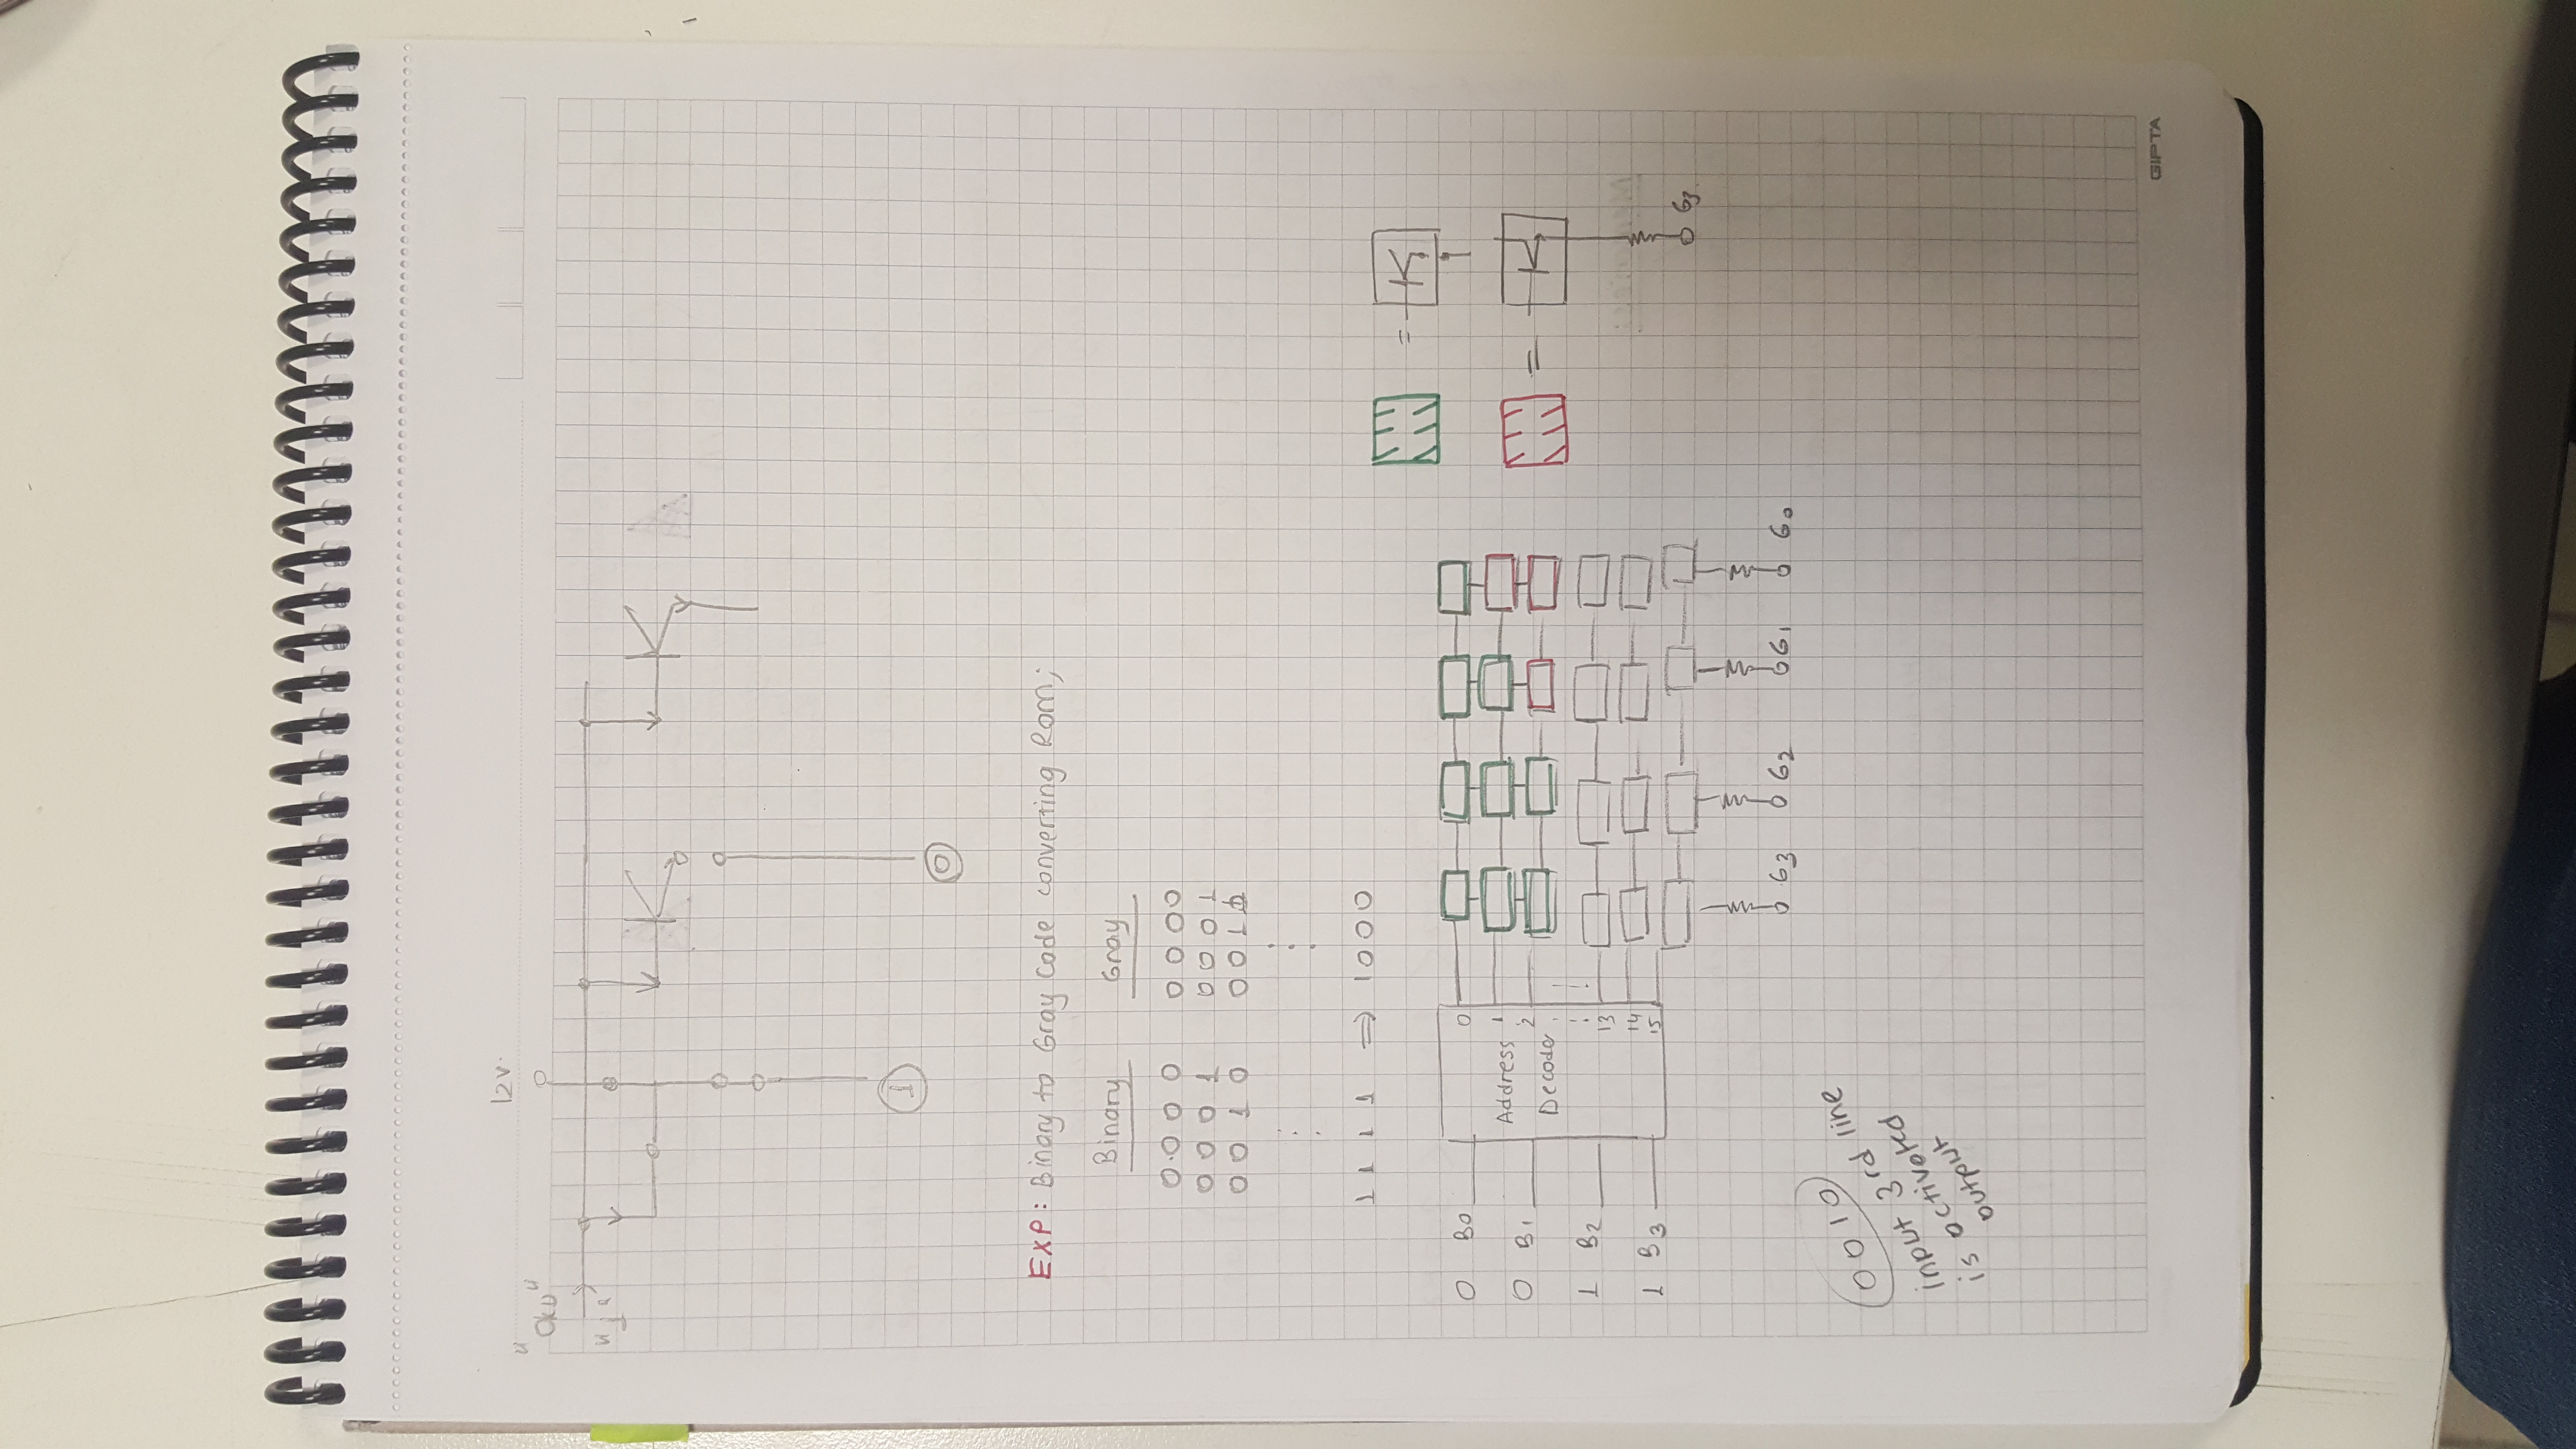 12V.
"Oku"
"1"
1
0
EXP: Binary to Gray Code converting Rom;
Binary Gray
0.000 0000
0001 0001
0010 0011
1111 ⇒ 1000
0 B0 0
Address 1
0 B1 2
Decoder
1 B2 13
14
1 B3 15
=
=
G3
G3 G2 G1 G0
0010
input 3rd line
is activated
output
GIPTA